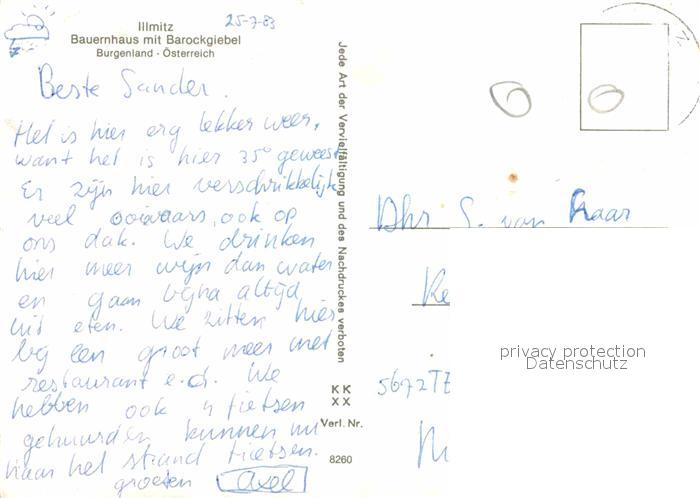 25-7-83
Illmitz
Bauernhaus mit Barockgiebel
Burgenland - Österreich
Beste Sander.
Het is hier erg lekker weer,
want het is hier 35° geweest
Er zijn hier verschrikkelijk
veel ooievaars, ook op
ons dak. We drinken
hier meer wijn dan water
en gaan bijna altijd
uit eten. We zitten hier
bij een groot meer met
restaurant e.d. We
hebben ook 4 fietsen
gehuurd en kunnen nu
naar het strand fietsen.
groeten Axel
Jede Art der Vervielfältigung und des Nachdruckes verboten
K K
X X
Verl. Nr.
8260
Dhr S. van
Ke
5672TE
privacy protection
Datenschutz